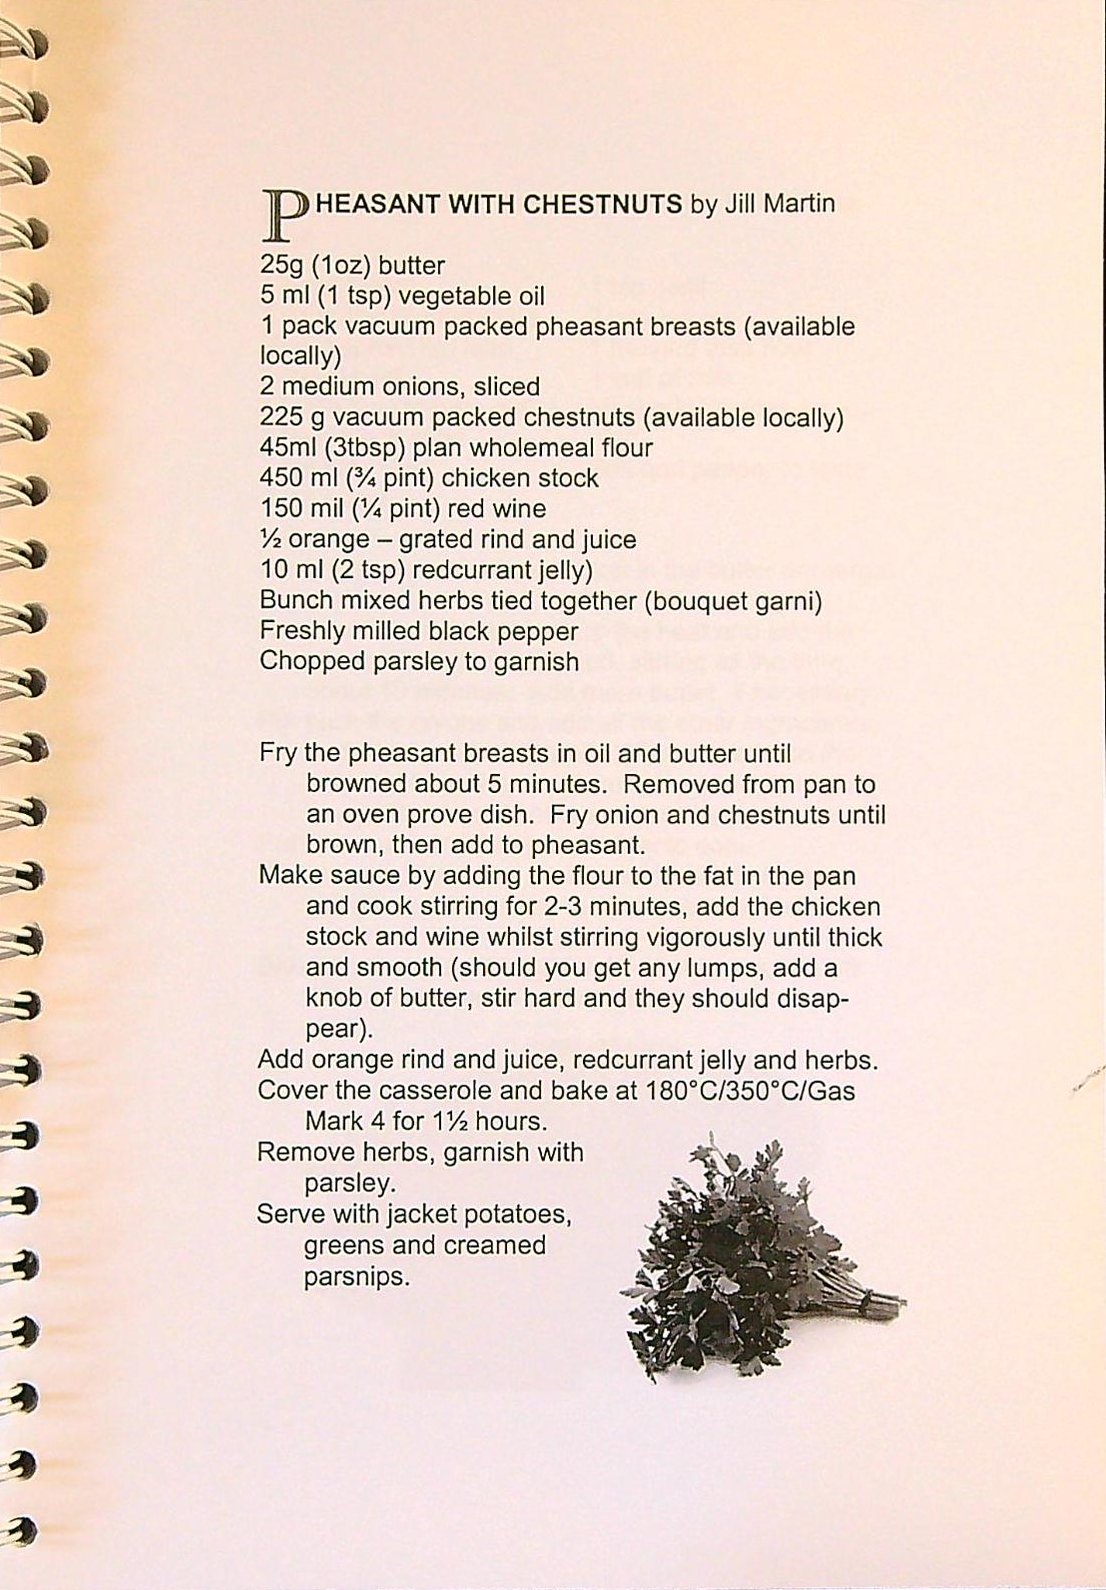 PHEASANT WITH CHESTNUTS by Jill Martin
25g (1oz) butter
5 ml (1 tsp) vegetable oil
1 pack vacuum packed pheasant breasts (available
locally)
2 medium onions, sliced
225 g vacuum packed chestnuts (available locally)
45ml (3tbsp) plan wholemeal flour
450 ml (¾ pint) chicken stock
150 mil (¼ pint) red wine
½ orange – grated rind and juice
10 ml (2 tsp) redcurrant jelly)
Bunch mixed herbs tied together (bouquet garni)
Freshly milled black pepper
Chopped parsley to garnish
Fry the pheasant breasts in oil and butter until
browned about 5 minutes.  Removed from pan to
an oven prove dish.  Fry onion and chestnuts until
brown, then add to pheasant.
Make sauce by adding the flour to the fat in the pan
and cook stirring for 2-3 minutes, add the chicken
stock and wine whilst stirring vigorously until thick
and smooth (should you get any lumps, add a
knob of butter, stir hard and they should disap-
pear).
Add orange rind and juice, redcurrant jelly and herbs.
Cover the casserole and bake at 180°C/350°C/Gas
Mark 4 for 1½ hours.
Remove herbs, garnish with
parsley.
Serve with jacket potatoes,
greens and creamed
parsnips.